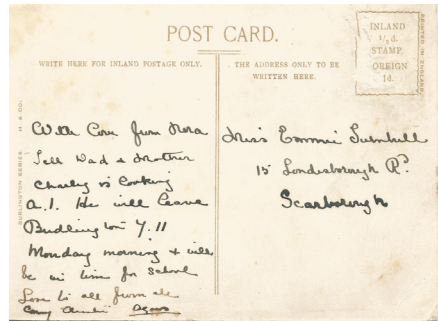 POST CARD.
WRITE HERE FOR INLAND POSTAGE ONLY.
THE ADDRESS ONLY TO BE
WRITTEN HERE.
INLAND
½d.
STAMP.
OREIGN
1d.
PRINTED IN ENGLAND.
BURLINGTON SERIES
H & CO.
With Love from Nora
Tell Dad & Mother
Charley is looking
A.1. He will leave
Bridlington 7.11
Monday morning & will
be in time for school
Love to all from
Miss Emmie Turnbull
15 Londesborough Rd.
Scarborough